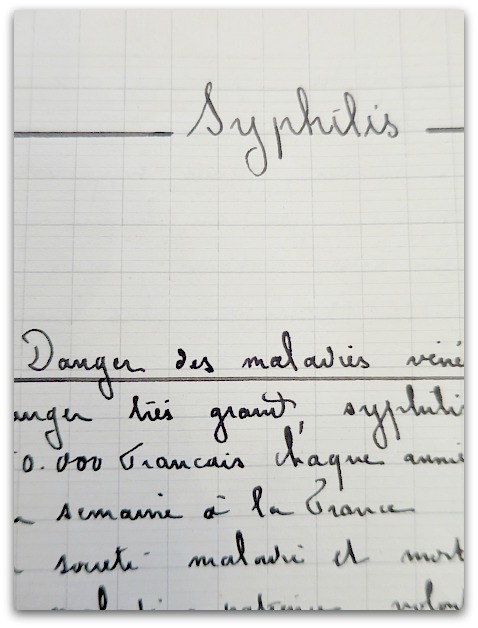 Syphilis
Danger des maladies véné
anger très grand, syphili
0.000 Francais chaque anné
semaine à la France
societé maladie et mort